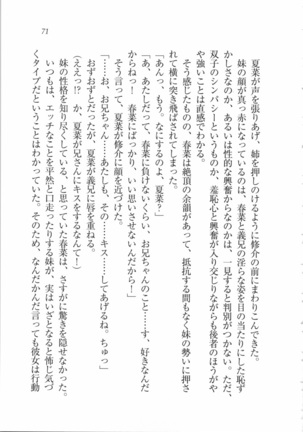 71
夏菜が声を張りあげ、姉を押しのけるように修介の前にまわりこんできた。
妹の顔が真っ赤になっているのは、春菜と義兄の淫らな姿を目の当たりにした恥ず
かしさなのか、あるいは性的な興奮からなのかは、一見すると判別がつかない。ただ、
双子のシンパシーというものか、羞恥心と興奮が入り交じりながらも後者のほうがや
や強いことは直感でわかる。
そう感じたものの、春菜は絶頂の余韻があって、抵抗する間もなく妹の勢いに押さ
れて横に突き飛ばされてしまった。
「あんっ。もう。なにするのよ、夏菜?」
「あ、あたしだって、春菜に負けないくらい、お兄ちゃんのこと……す、好きなんだ
からね! 春菜にばっかり、いい思いさせないんだから!」
そう言って、夏菜が修介に顔を近づけた。
「……お、お兄ちゃん……あたしも、その……キス……してあげるね。ちゅっ」
おずおずとだったが、夏菜が義兄に唇を重ねる。
(ええっ!? か、夏菜が兄さんにキスをするなんて!)
妹の性格を知り尽くしている、と思っていた春菜は、さすがに驚きを隠せなかった。
いつもは、エッチなことを平然と口走ったりする妹が、実はいざとなると怖じ気づ
くタイプだということはわかっていた。そのため、なんだかんだ言っても彼女は行動